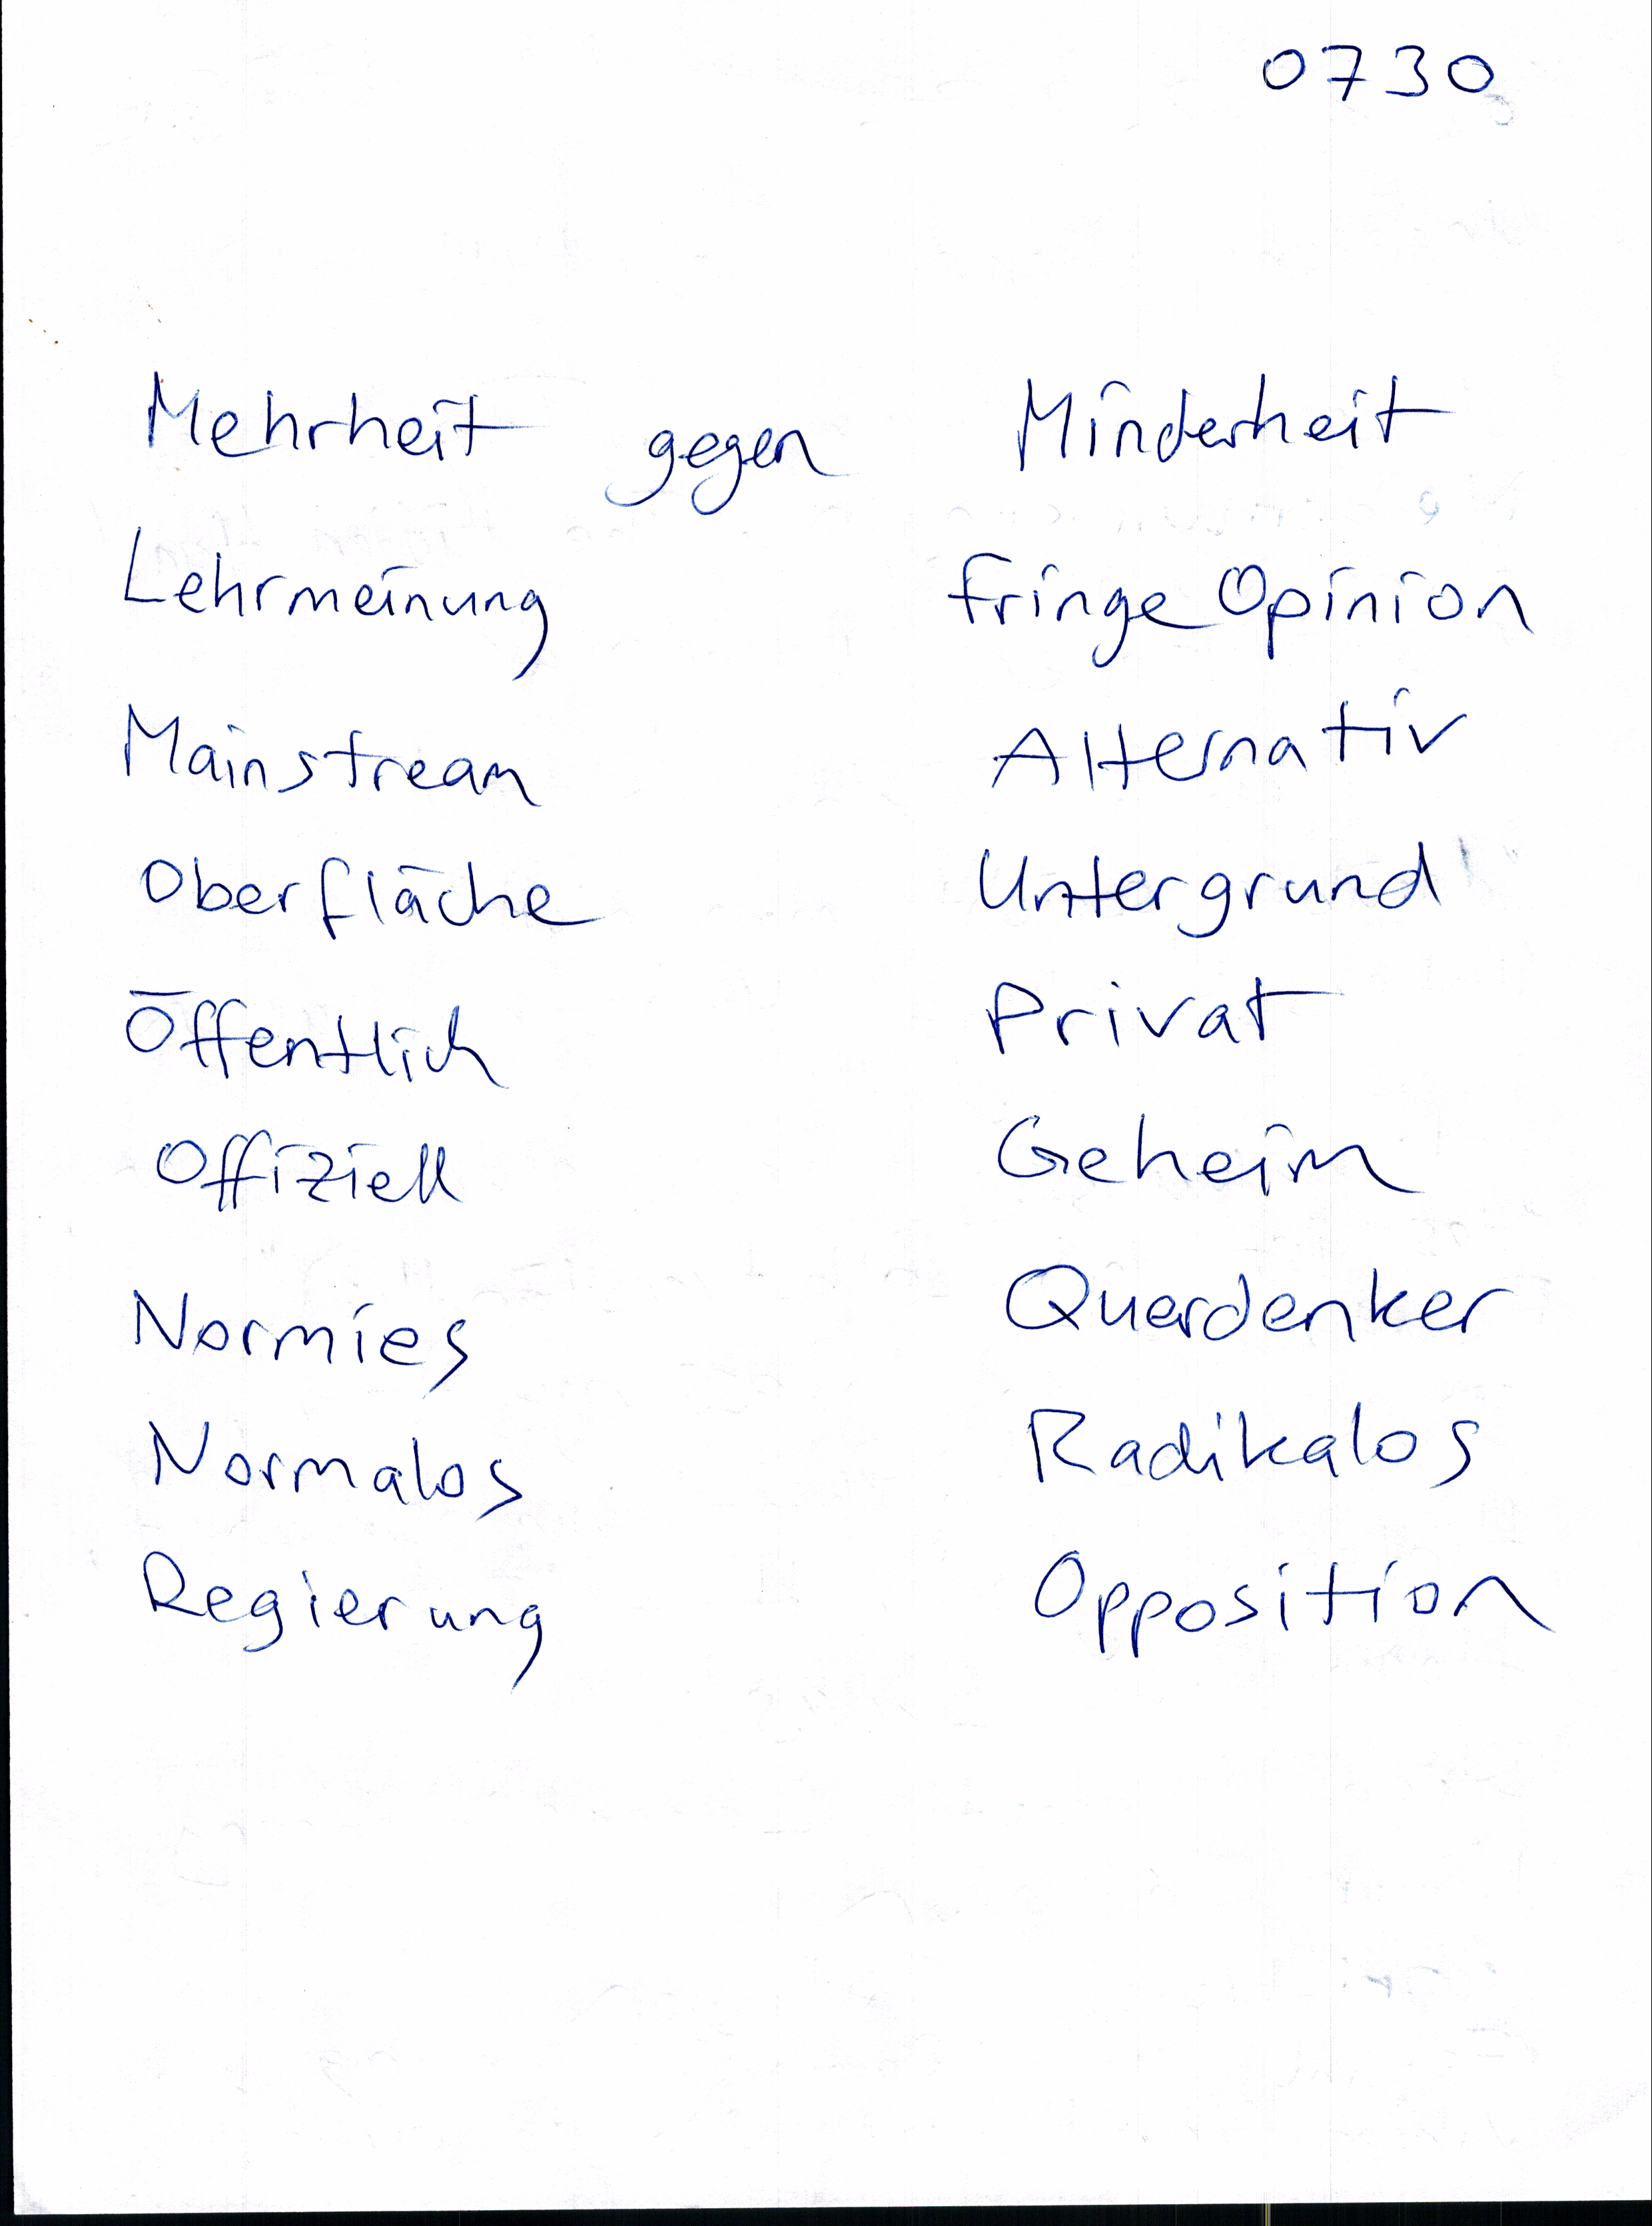 0730
Mehrheit gegen Minderheit
Lehrmeinung Fringe Opinion
Mainstream Alternativ
Oberfläche Untergrund
Öffentlich Privat
Offiziell Geheim
Normies Querdenker
Normalos Radikalos
Regierung Opposition